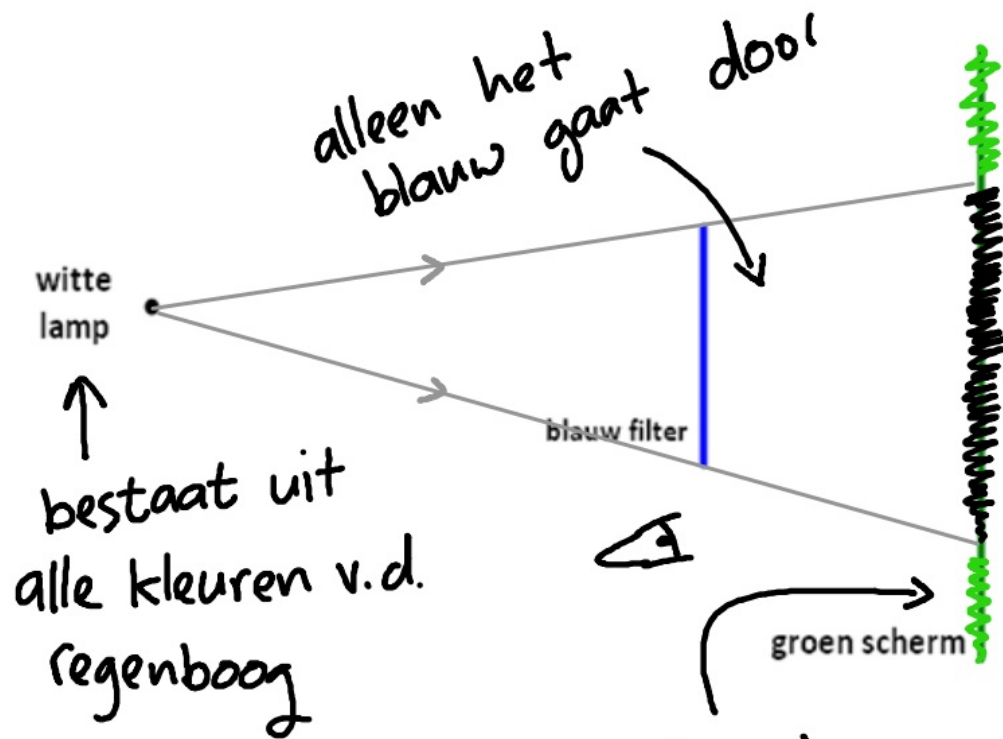 alleen het
blauw gaat door
witte
lamp
blauw filter
bestaat uit
alle kleuren v.d.
regenboog
groen scherm